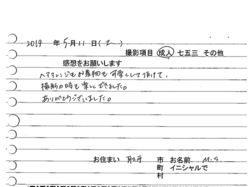 2019 年 5月 11日(土)
撮影項目 成人 七五三 その他
感想をお願いします
ヘアアレンジもお着物も可愛くして頂けて、
撮影の時も楽しくできました。
ありがとうございました。
お住まい 市 お名前 M.S
町 イニシャルで
村